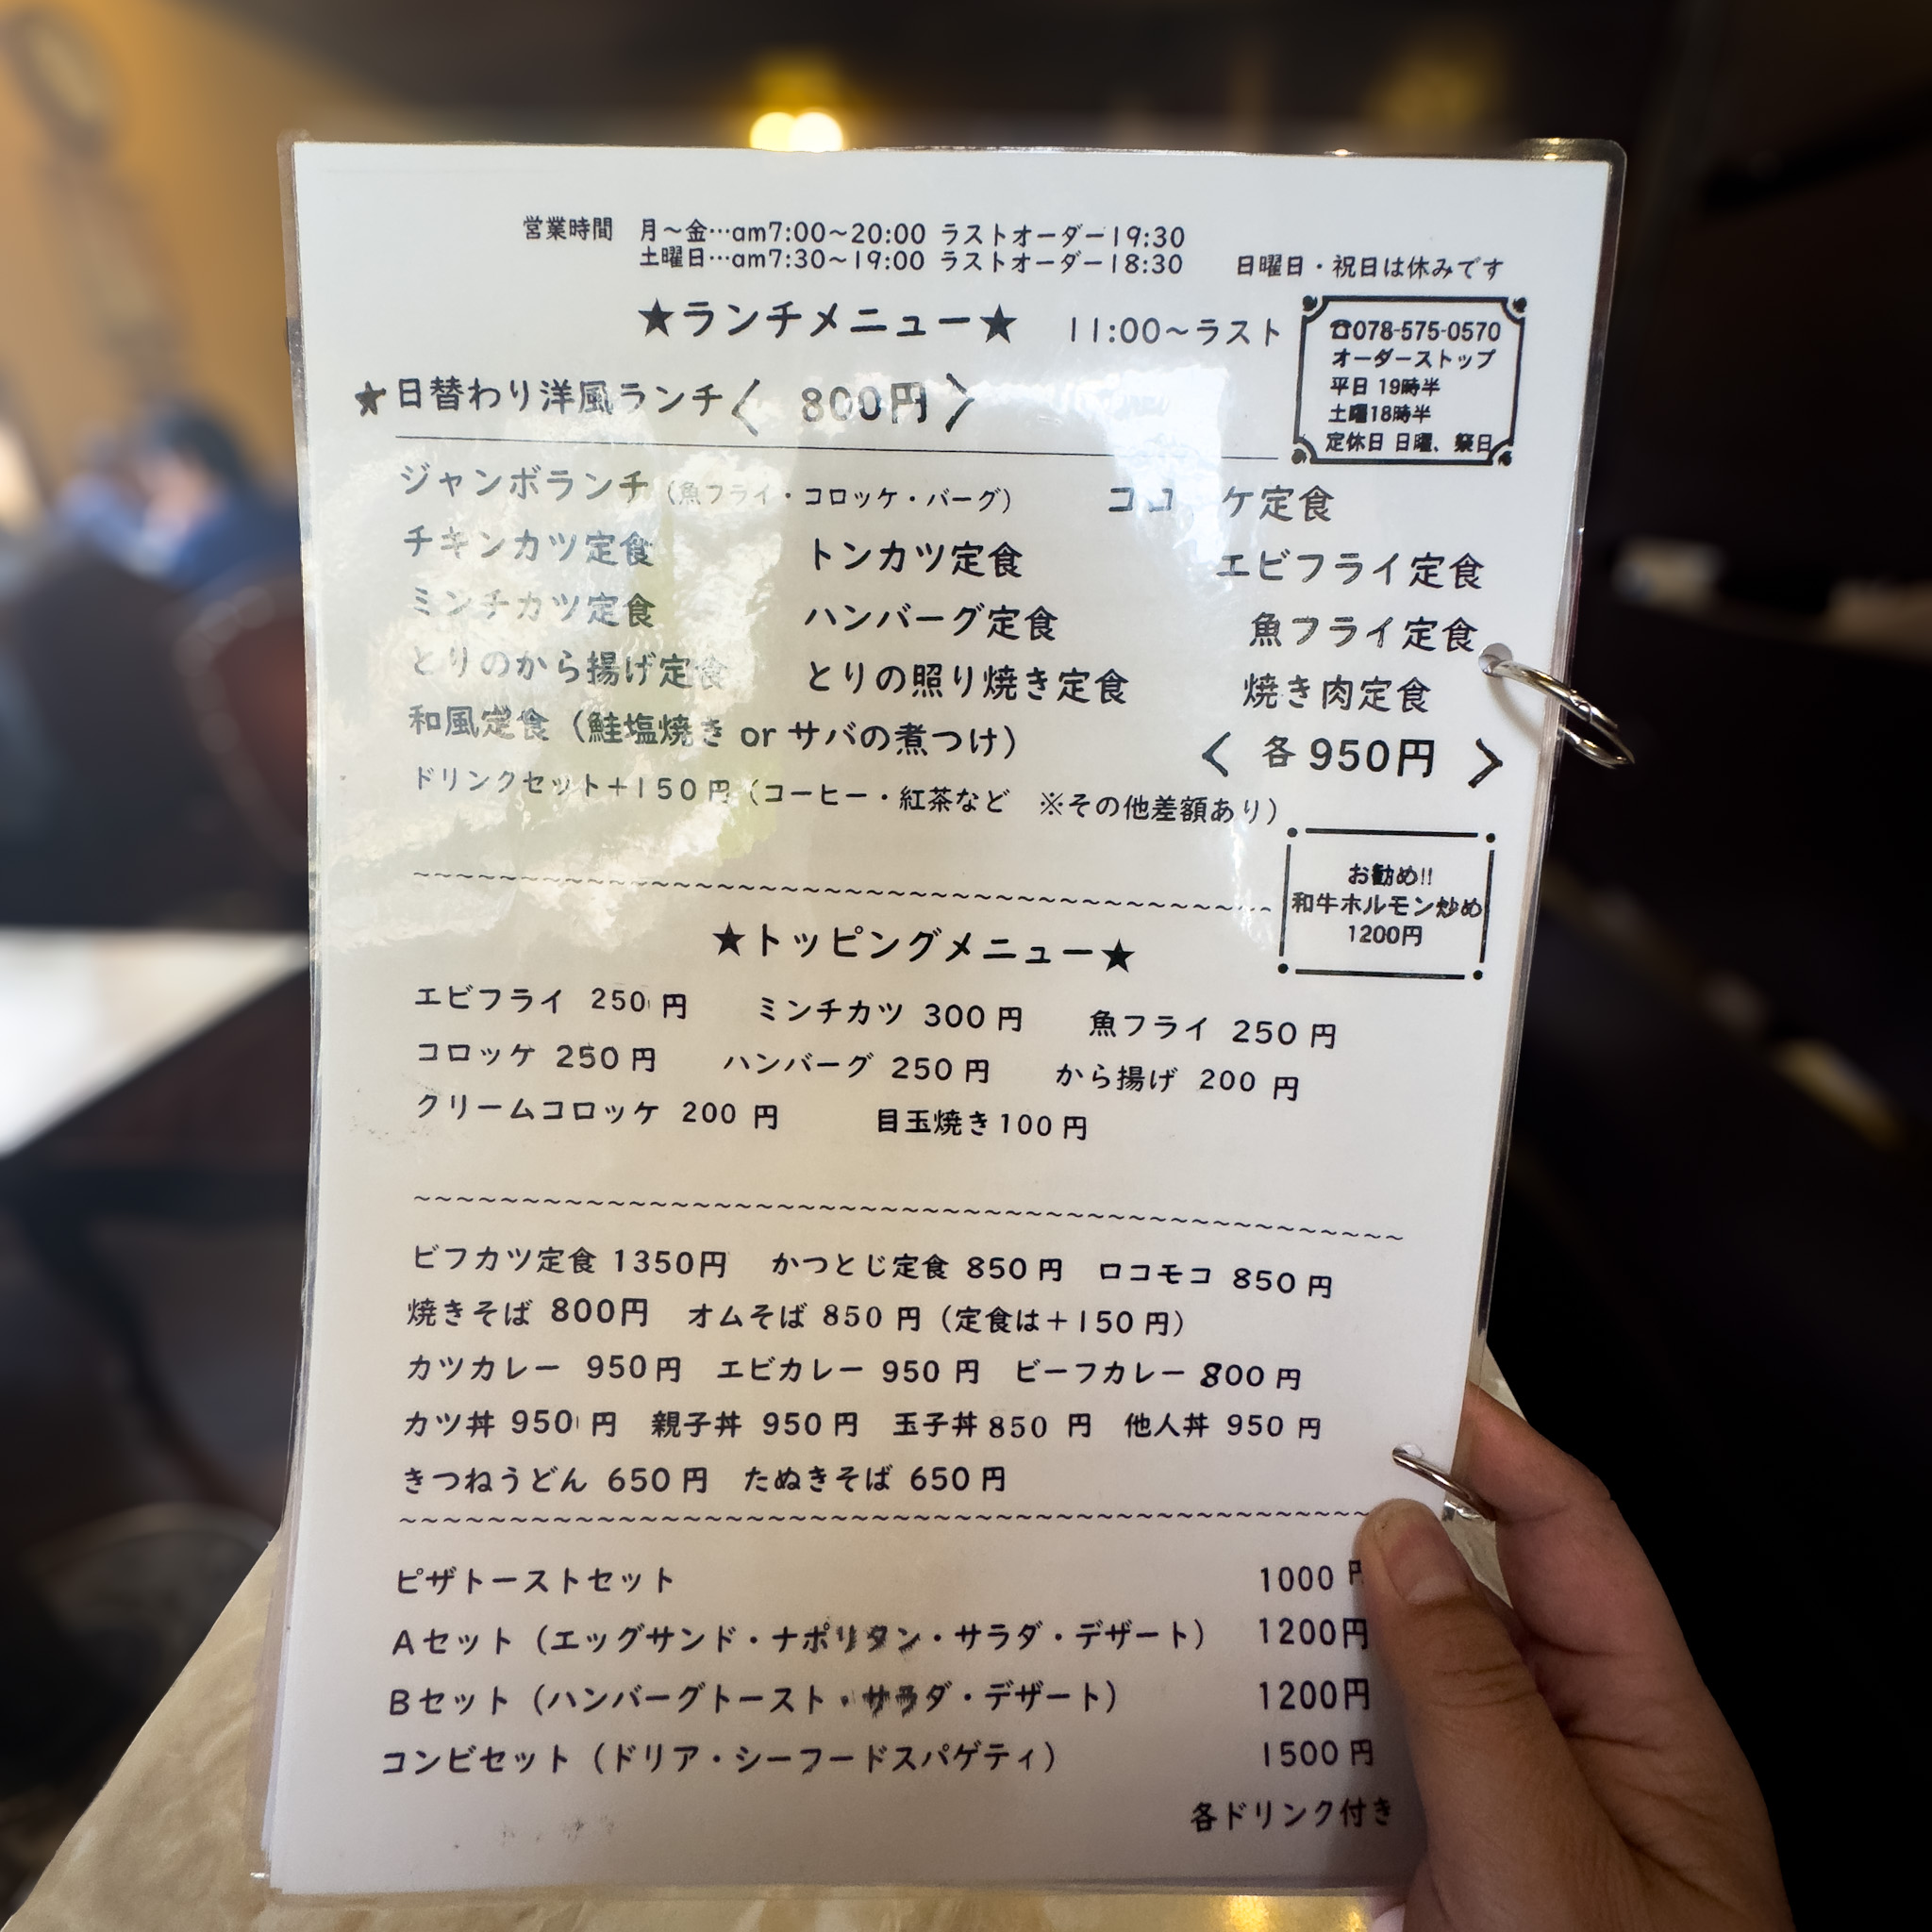 営業時間 月～金…am7:00～20:00 ラストオーダー19:30
土曜日…am7:30～19:00 ラストオーダー18:30 日曜日・祝日は休みです
★ランチメニュー★ 11:00～ラスト
☎078-575-0570
オーダーストップ
平日 19時半
土曜18時半
定休日 日曜、祭日
★日替わり洋風ランチ〈 800円 〉
ジャンボランチ（魚フライ・コロッケ・バーグ） コロッケ定食
チキンカツ定食 トンカツ定食 エビフライ定食
ミンチカツ定食 ハンバーグ定食 魚フライ定食
とりのから揚げ定食 とりの照り焼き定食 焼き肉定食
和風定食（鮭塩焼き or サバの煮つけ） 〈 各950円 〉
ドリンクセット＋150円（コーヒー・紅茶など ※その他差額あり）
お勧め!!
和牛ホルモン炒め
1200円
★トッピングメニュー★
エビフライ 250円 ミンチカツ 300円 魚フライ 250円
コロッケ 250円 ハンバーグ 250円 から揚げ 200円
クリームコロッケ 200円 目玉焼き100円
ビフカツ定食 1350円 かつとじ定食 850円 ロコモコ 850円
焼きそば 800円 オムそば 850円（定食は＋150円）
カツカレー 950円 エビカレー 950円 ビーフカレー 800円
カツ丼 950円 親子丼 950円 玉子丼 850円 他人丼 950円
きつねうどん 650円 たぬきそば 650円
ピザトーストセット 1000円
Aセット（エッグサンド・ナポリタン・サラダ・デザート） 1200円
Bセット（ハンバーグトースト・サラダ・デザート） 1200円
コンビセット（ドリア・シーフードスパゲティ） 1500円
各ドリンク付き